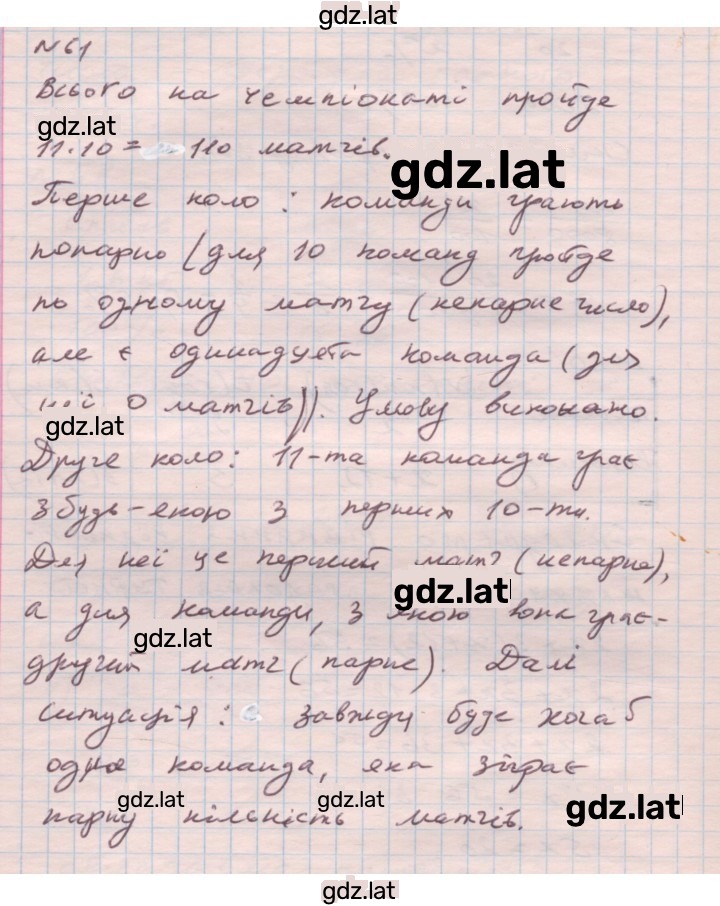 gdz.lat
N 61
Всього на чемпіонаті пройде
gdz.lat
11·10 = 110 матчів.
gdz.lat
Перше коло: команди грають
попарно (для 10 команд пройде
по одному матчу (непарне число),
але є одинадцята команда (для
неї 0 матчів)). Умову виконано.
gdz.lat
Друге коло: 11-та команда грає
з будь-якою з перших 10-ти.
Для неї це перший матч (непарне),
gdz.lat
а для команди, з якою вона грає-
gdz.lat
другий матч (парне). Далі
ситуація: завжди буде хоча б
одна команда, яка зіграє
gdz.lat gdz.lat gdz.lat
парну кількість матчів.
gdz.lat